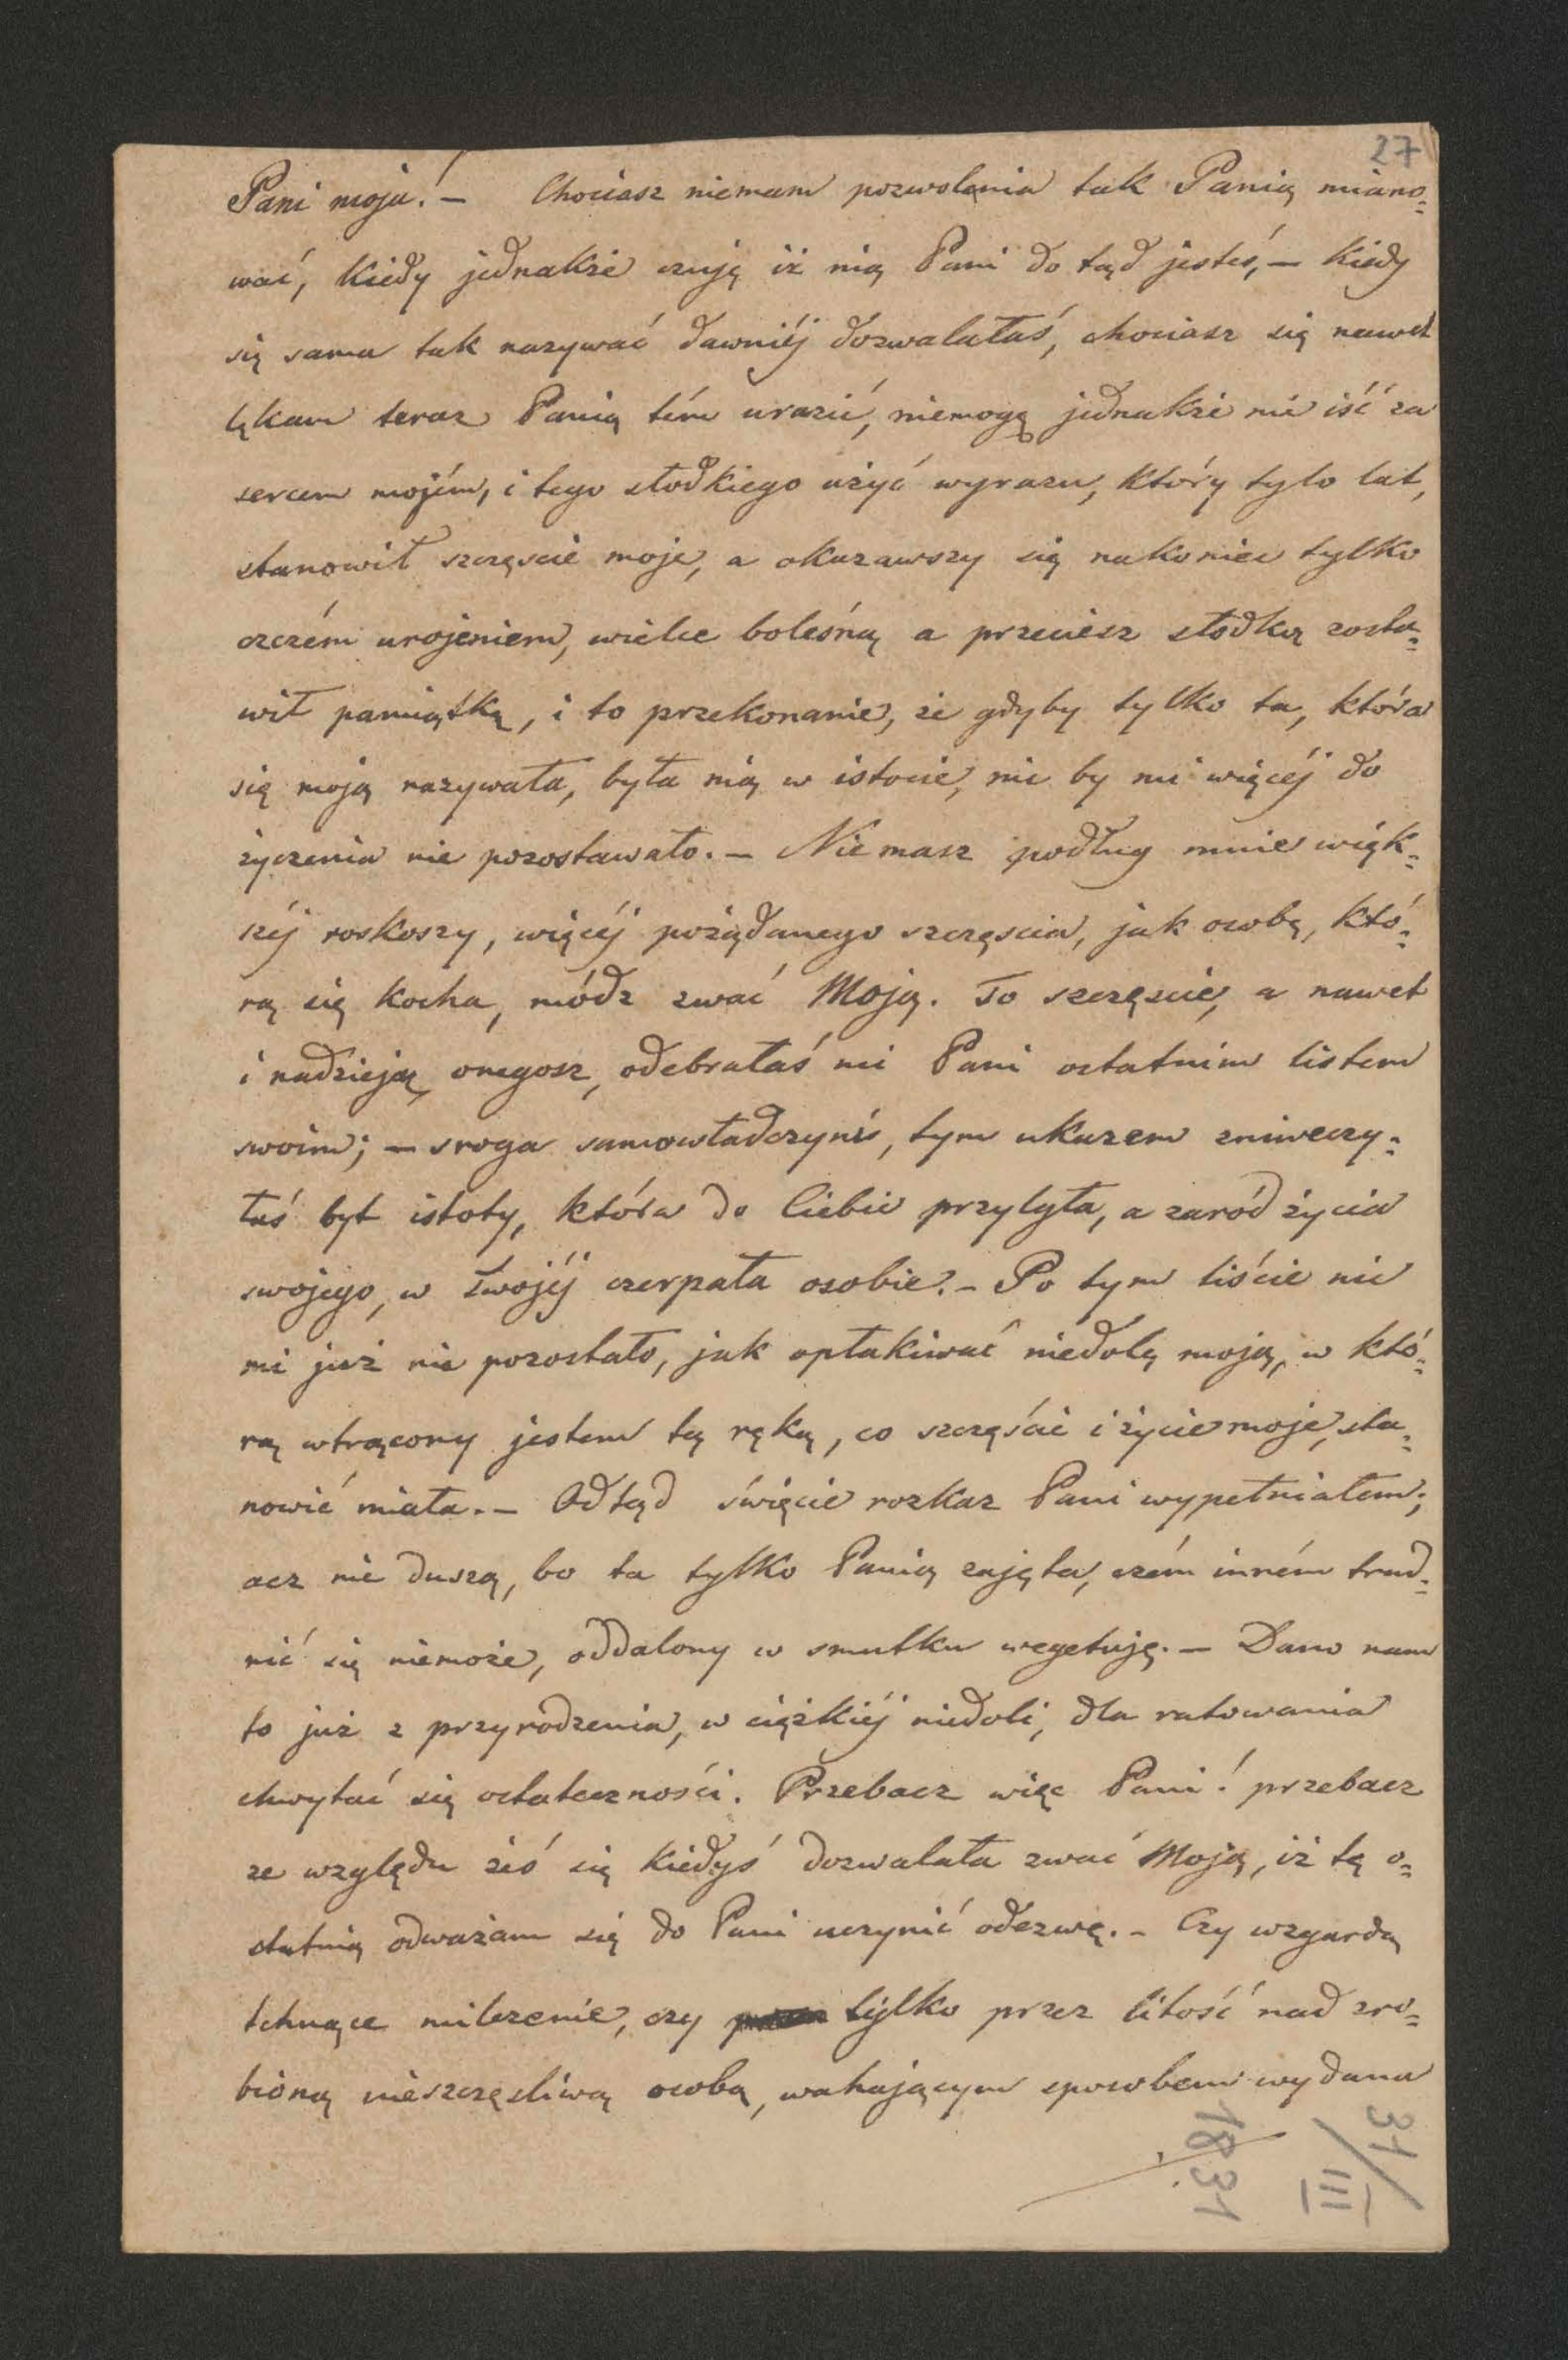 27
Pani moja! – Chociasz niemam pozwolenia tak Panią miano=
wać, kiedy jednakże czuję iż nią Pani do tąd jesteś, – kiedy
się sama tak nazywać dawniéj dozwalałaś, chociasz się nawet
lękam teraz Panią tém urazić, niemogę jednakże nie iść za
sercem mojém, i tego słodkiego użyć wyrazu, który tylo lat,
stanowił szczęscie moje, a okazawszy się nakoniec tylko
czczém urojeniem, wielce boleśną a przeciesz słodką zosta=
wił pamiątkę, i to przekonanie, że gdyby tylko ta, która
się moją nazywała, była nią w istocie, nic by mi więcéj do
życzenia nie pozostawało. – Nie masz podług mnie więk=
széj roskoszy, więcéj pożądanego szczęscia, jak osobę, któ=
rą się kocha, módz zwać Moją. To szczęscie, a nawet
i nadzieję onegosz, odebrałaś mi Pani ostatnim listem
swoim; – sroga samowładczyni, tym ukazem zniweczy=
łaś byt istoty, która do Ciebie przylgła, a zaród życia
swojego, w Twojéj czerpała osobie. – Po tym liście nic
mi już nie pozostało, jak opłakiwać niedolę moją, w któ=
rą wtrącony jestem tą ręką, co szczęście i życie moje, sta=
nowić miała. – Odtąd święcie rozkaz Pani wypełniałem;
acz nie duszą, bo ta tylko Panią zajęta, czém inném trud=
nić się niemoże, oddalony w smutku wegetuję. – Dano nam
to już z przyrodzenia, w ciężkiéj niedoli, dla ratowania
chwytać się ostateczności. Przebacz więc Pani! przebacz
ze względu żeś się kiedyś dozwalała zwać Moją, iż tę o=
statnią odważam się do Pani uczynić odezwę. – Czy wzgardą
tchnące milczenie, czy tylko przez litość nad zro=
bioną nieszczęsliwą osobą, wahającym sposobem wydana
31/III
1831